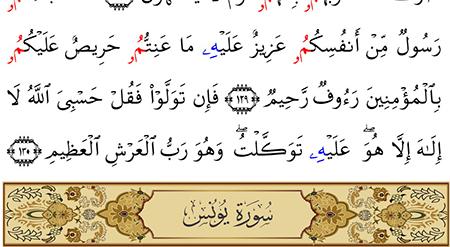 رَسُولٌ مِّنْ أَنفُسِكُمُۥ عَزِيزٌ عَلَيْهِۦ مَا عَنِتُّمُۥ حَرِيصٌ عَلَيْكُمُۥ
بِالْمُؤْمِنِينَ رَءُوفٌ رَّحِيمٌ ﴿١٢٩﴾ فَإِن تَوَلَّوْا۟ فَقُلْ حَسْبِىَ ٱللَّهُ لَا
إِلَـٰهَ إِلَّا هُوَ ۖ عَلَيْهِۦ تَوَكَّلْتُ ۖ وَهُوَ رَبُّ ٱلْعَرْشِ ٱلْعَظِيمِ ﴿١٣٠﴾
سُورَةُ يُونُسَ